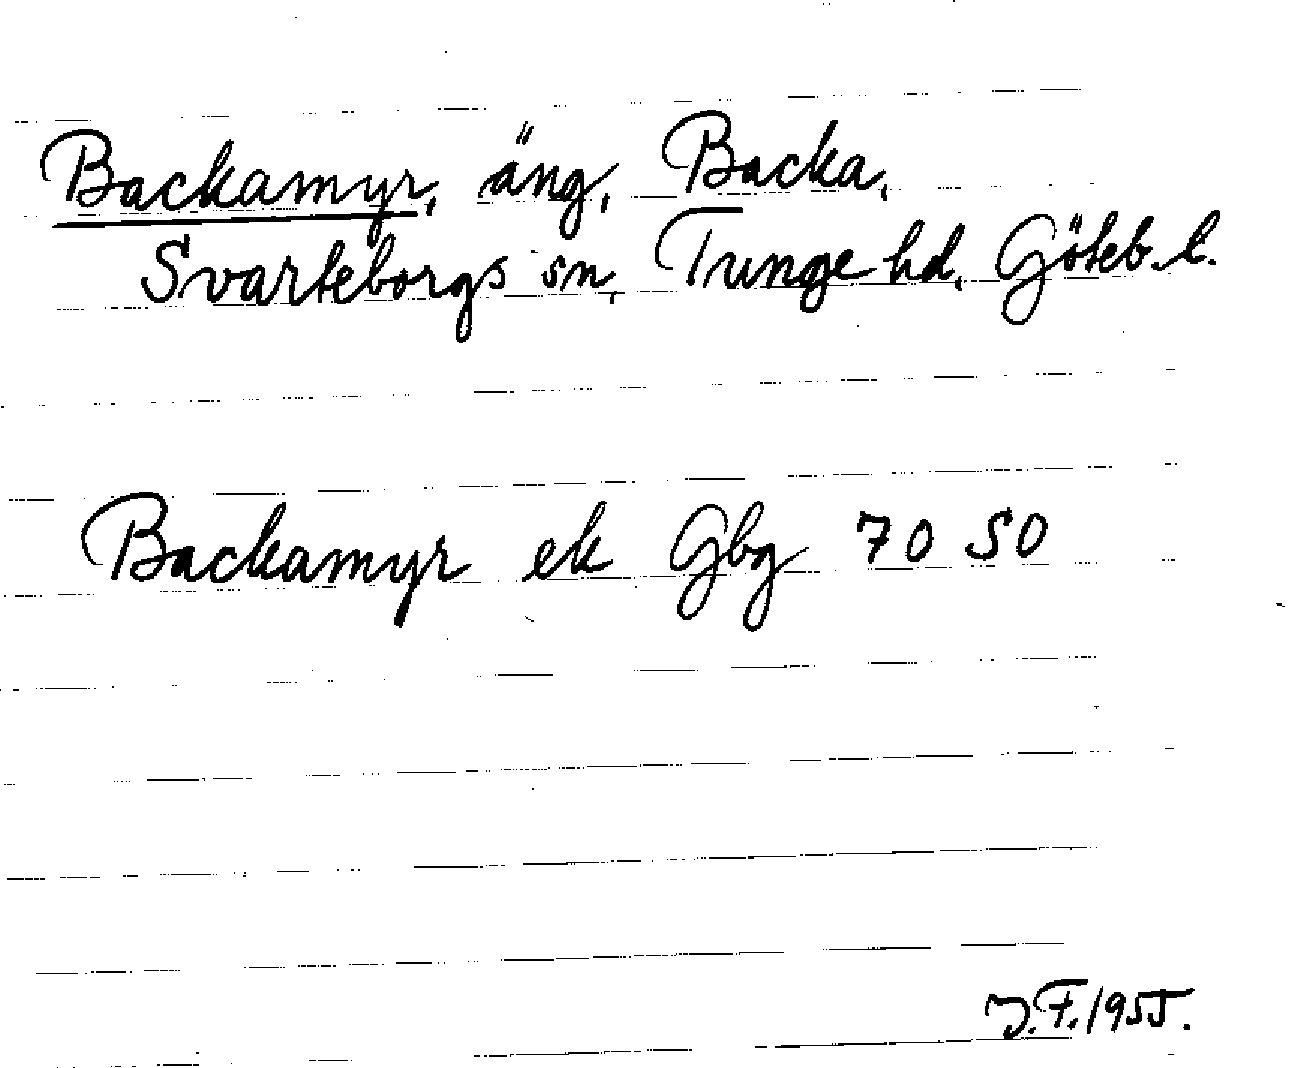 Backamyr, äng, Backa,
Svarteborgs sn, Tunge hd, Göteb. l.
Backamyr ek Gbg 70 50
J.F. 1955.